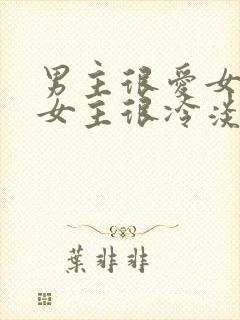 男主很愛女
女主很冷淡
葉非非